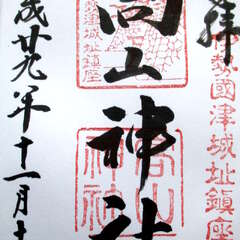 拝
勢國津城址鎮座
高山神社
津城址鎮座
高山
成廿九年十一月十